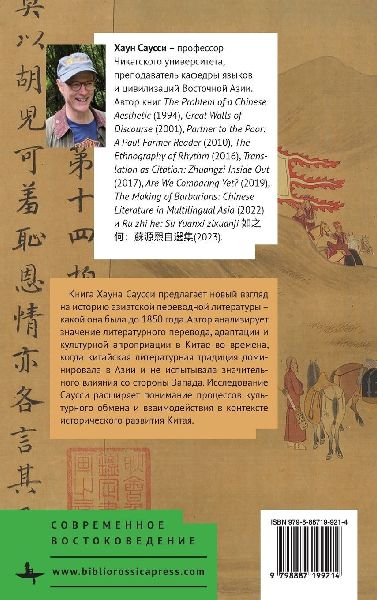 莫以胡兒可羞恥恩情亦各言其
第十四拍
Хаун Саусси – профессор
Чикагского университета,
преподаватель кафедры языков
и цивилизаций Восточной Азии.
Автор книг The Problem of a Chinese
Aesthetic (1994), Great Walls of
Discourse (2001), Partner to the Poor:
A Paul Farmer Reader (2010), The
Ethnography of Rhythm (2016), Trans-
lation as Citation: Zhuangzi Inside Out
(2017), Are We Comparing Yet? (2019),
The Making of Barbarians: Chinese
Literature in Multilingual Asia (2022)
и Ru zhi he: Su Yuanxi zixuanji 如之
何：蘇源熙自選集(2023).
Книга Хауна Саусси предлагает новый взгляд
на историю азиатской переводной литературы –
какой она была до 1850 года. Автор анализирует
значение литературного перевода, адаптации и
культурной апроприации в Китае во времена,
когда китайская литературная традиция доми-
нировала в Азии и не испытывала значитель-
ного влияния со стороны Запада. Исследование
Саусси расширяет понимание процессов куль-
турного обмена и взаимодействия в контексте
исторического развития Китая.
СОВРЕМЕННОЕ
ВОСТОКОВЕДЕНИЕ
www.bibliorossicapress.com
ISBN 979-8-88719-921-4
9 798887 199214